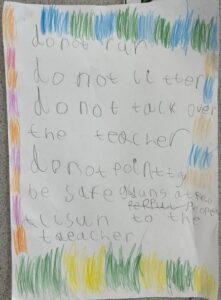 do not run
do not litter
do not talk over
the teacher
do not point
be safe guns at
people
lisun to the
teacher